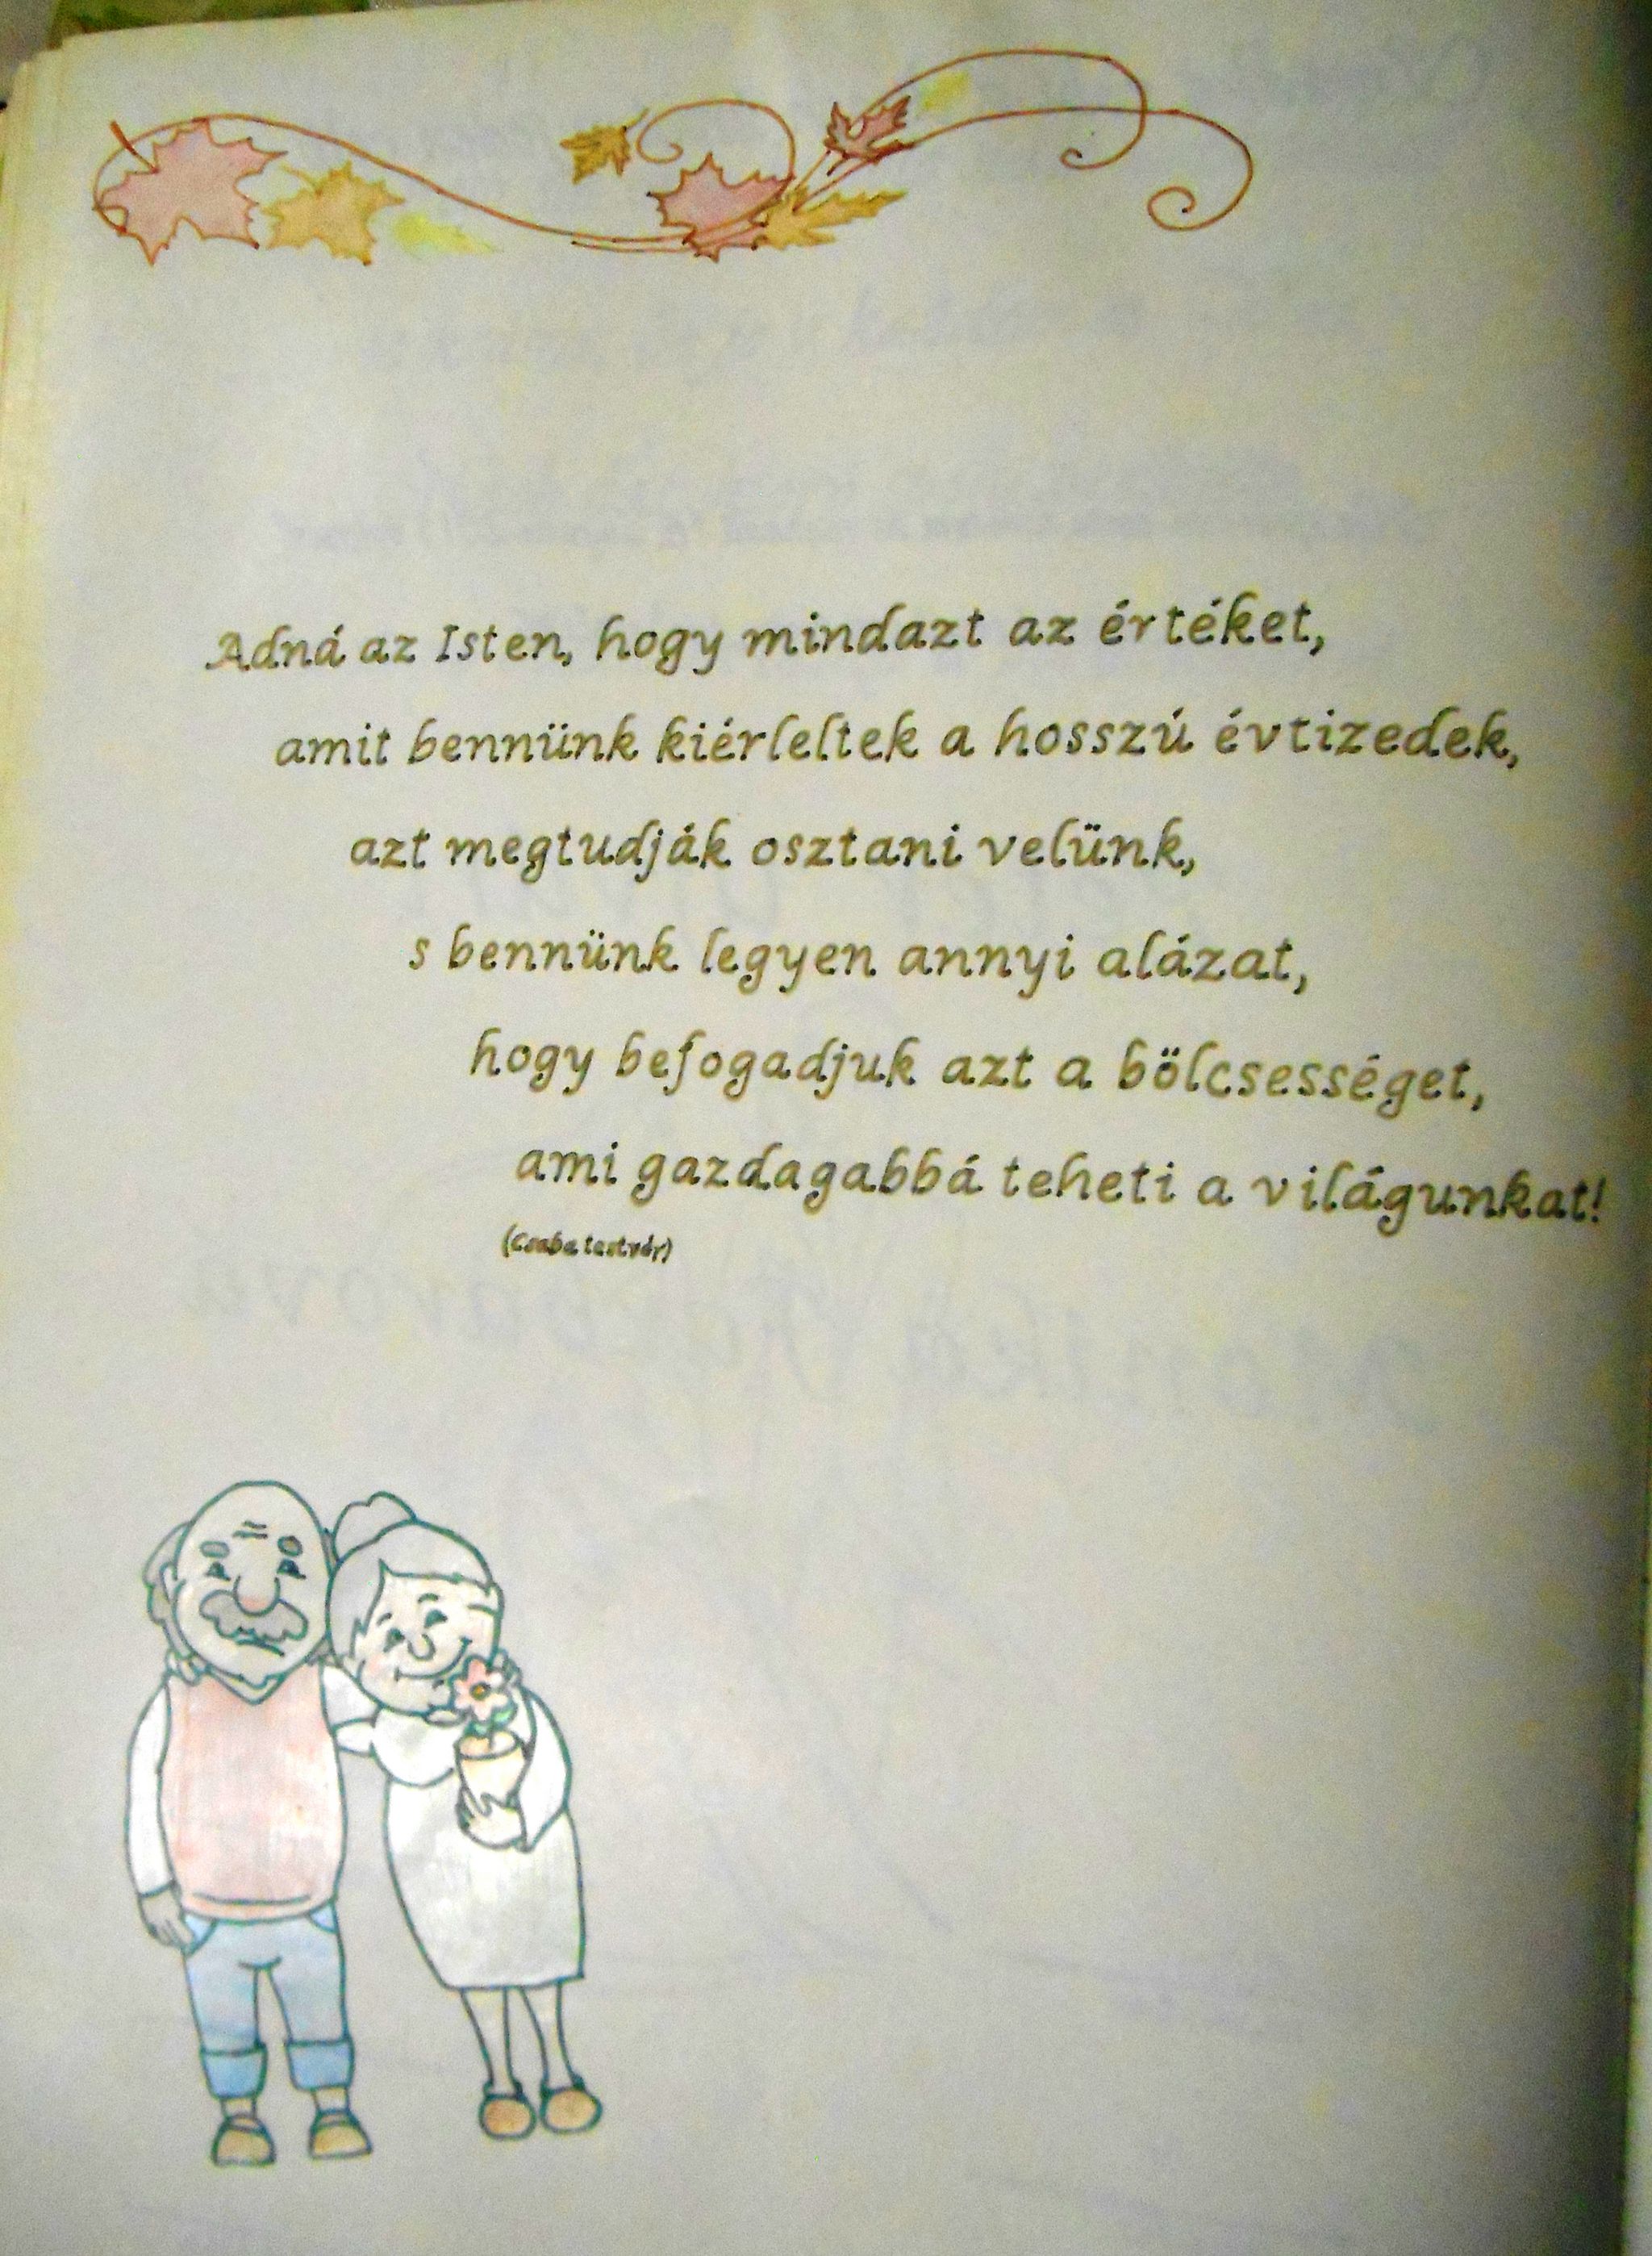 Adná az Isten, hogy mindazt az értéket,
amit bennünk kiérleltek a hosszú évtizedek,
azt megtudják osztani velünk,
s bennünk legyen annyi alázat,
hogy befogadjuk azt a bölcsességet,
ami gazdagabbá teheti a világunkat!
(Csaba testvér)